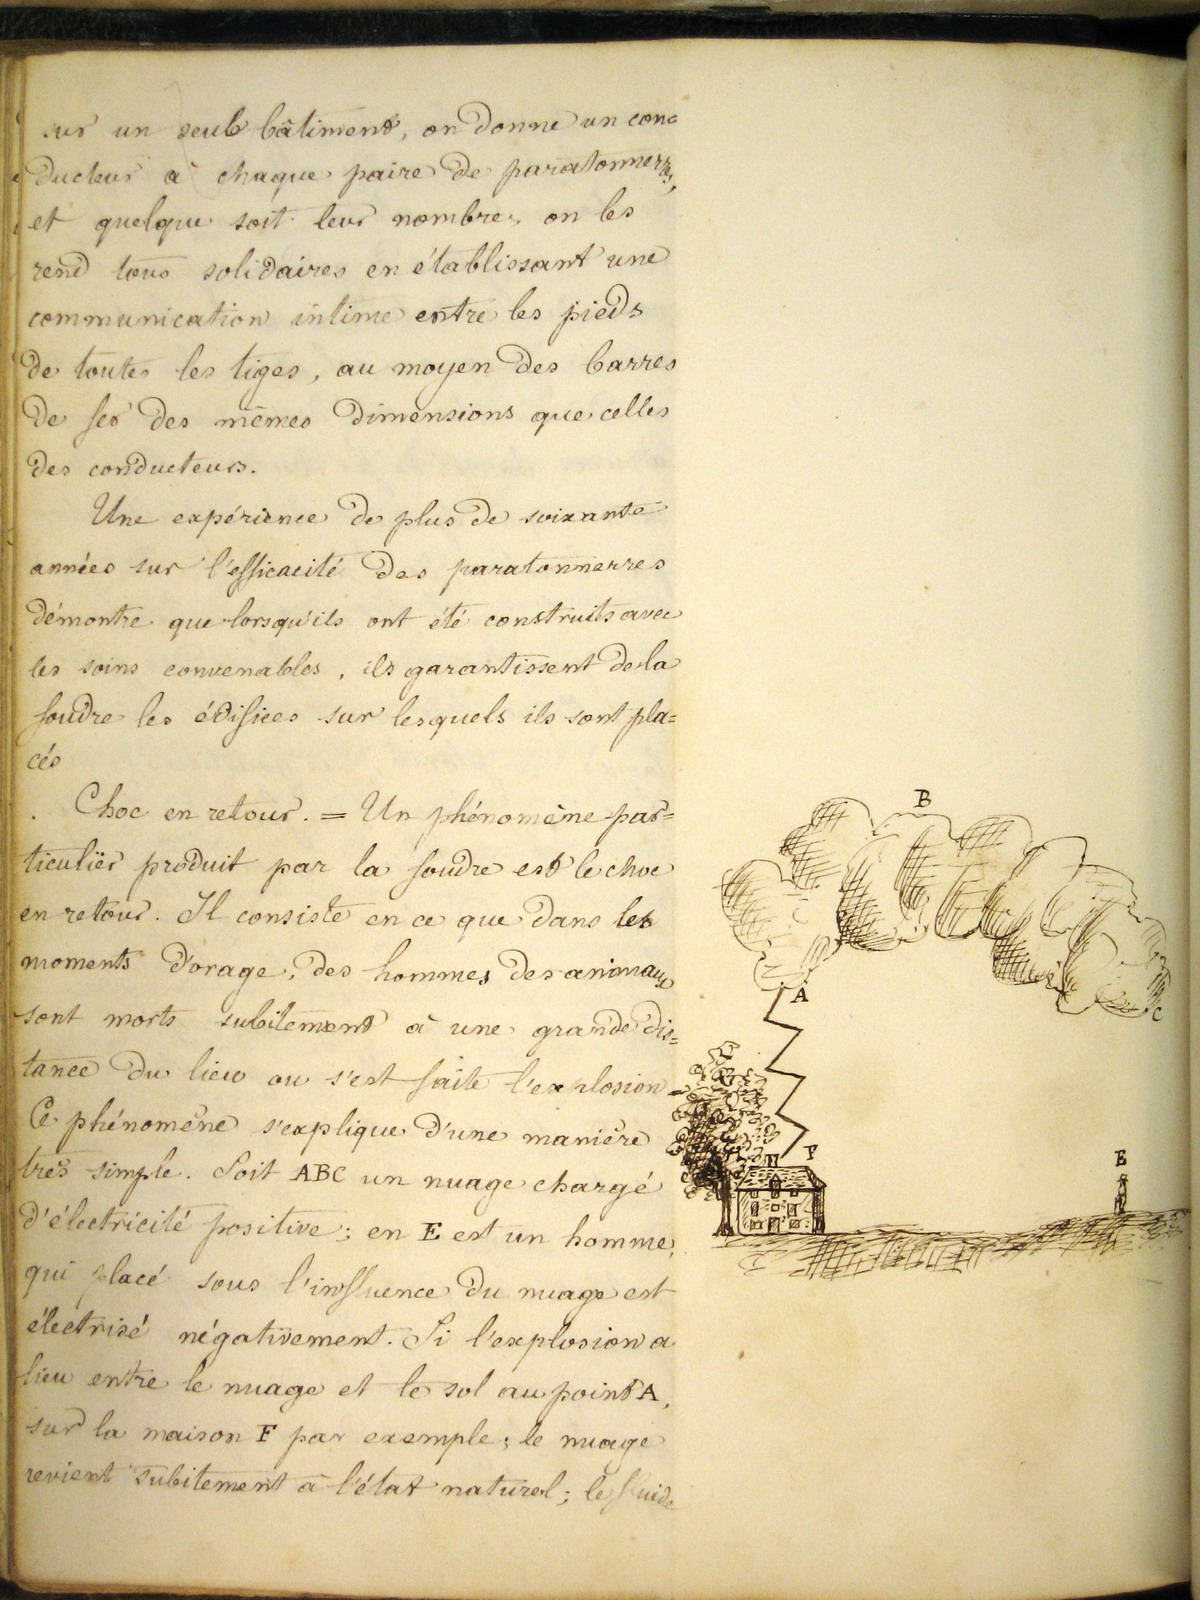 sur un seul bâtiment, on donne un con=
ducteur à chaque paire de paratonnerres,
et quelque soit leur nombre, on les
rend tous solidaires en établissant une
communication intime entre les pieds
de toutes les tiges, au moyen des barres
de fer des mêmes dimensions que celles
des conducteurs.
Une expérience de plus de soixante
années sur l'efficacité des paratonnerres
démontre que lorsqu'ils ont été construits avec
les soins convenables, ils garantissent de la
foudre les édifices sur lesquels ils sont pla=
cés
Choc en retour. = Un phénomène par=
ticulier produit par la foudre est le choc
en retour. Il consiste en ce que dans les
moments d'orage, des hommes des animaux
sont morts subitement à une grande dis=
tance du lieu ou s'est faite l'explosion
Ce phénomène s'explique d'une manière
très simple. Soit ABC un nuage chargé
d'électricité positive; en E est un homme,
qui placé sous l'influence du nuage est
électrisé négativement. Si l'explosion a
lieu entre le nuage et le sol au point A,
sur la maison F par exemple; le nuage
revient subitement à l'état naturel; le fluide
B
A
C
F
E